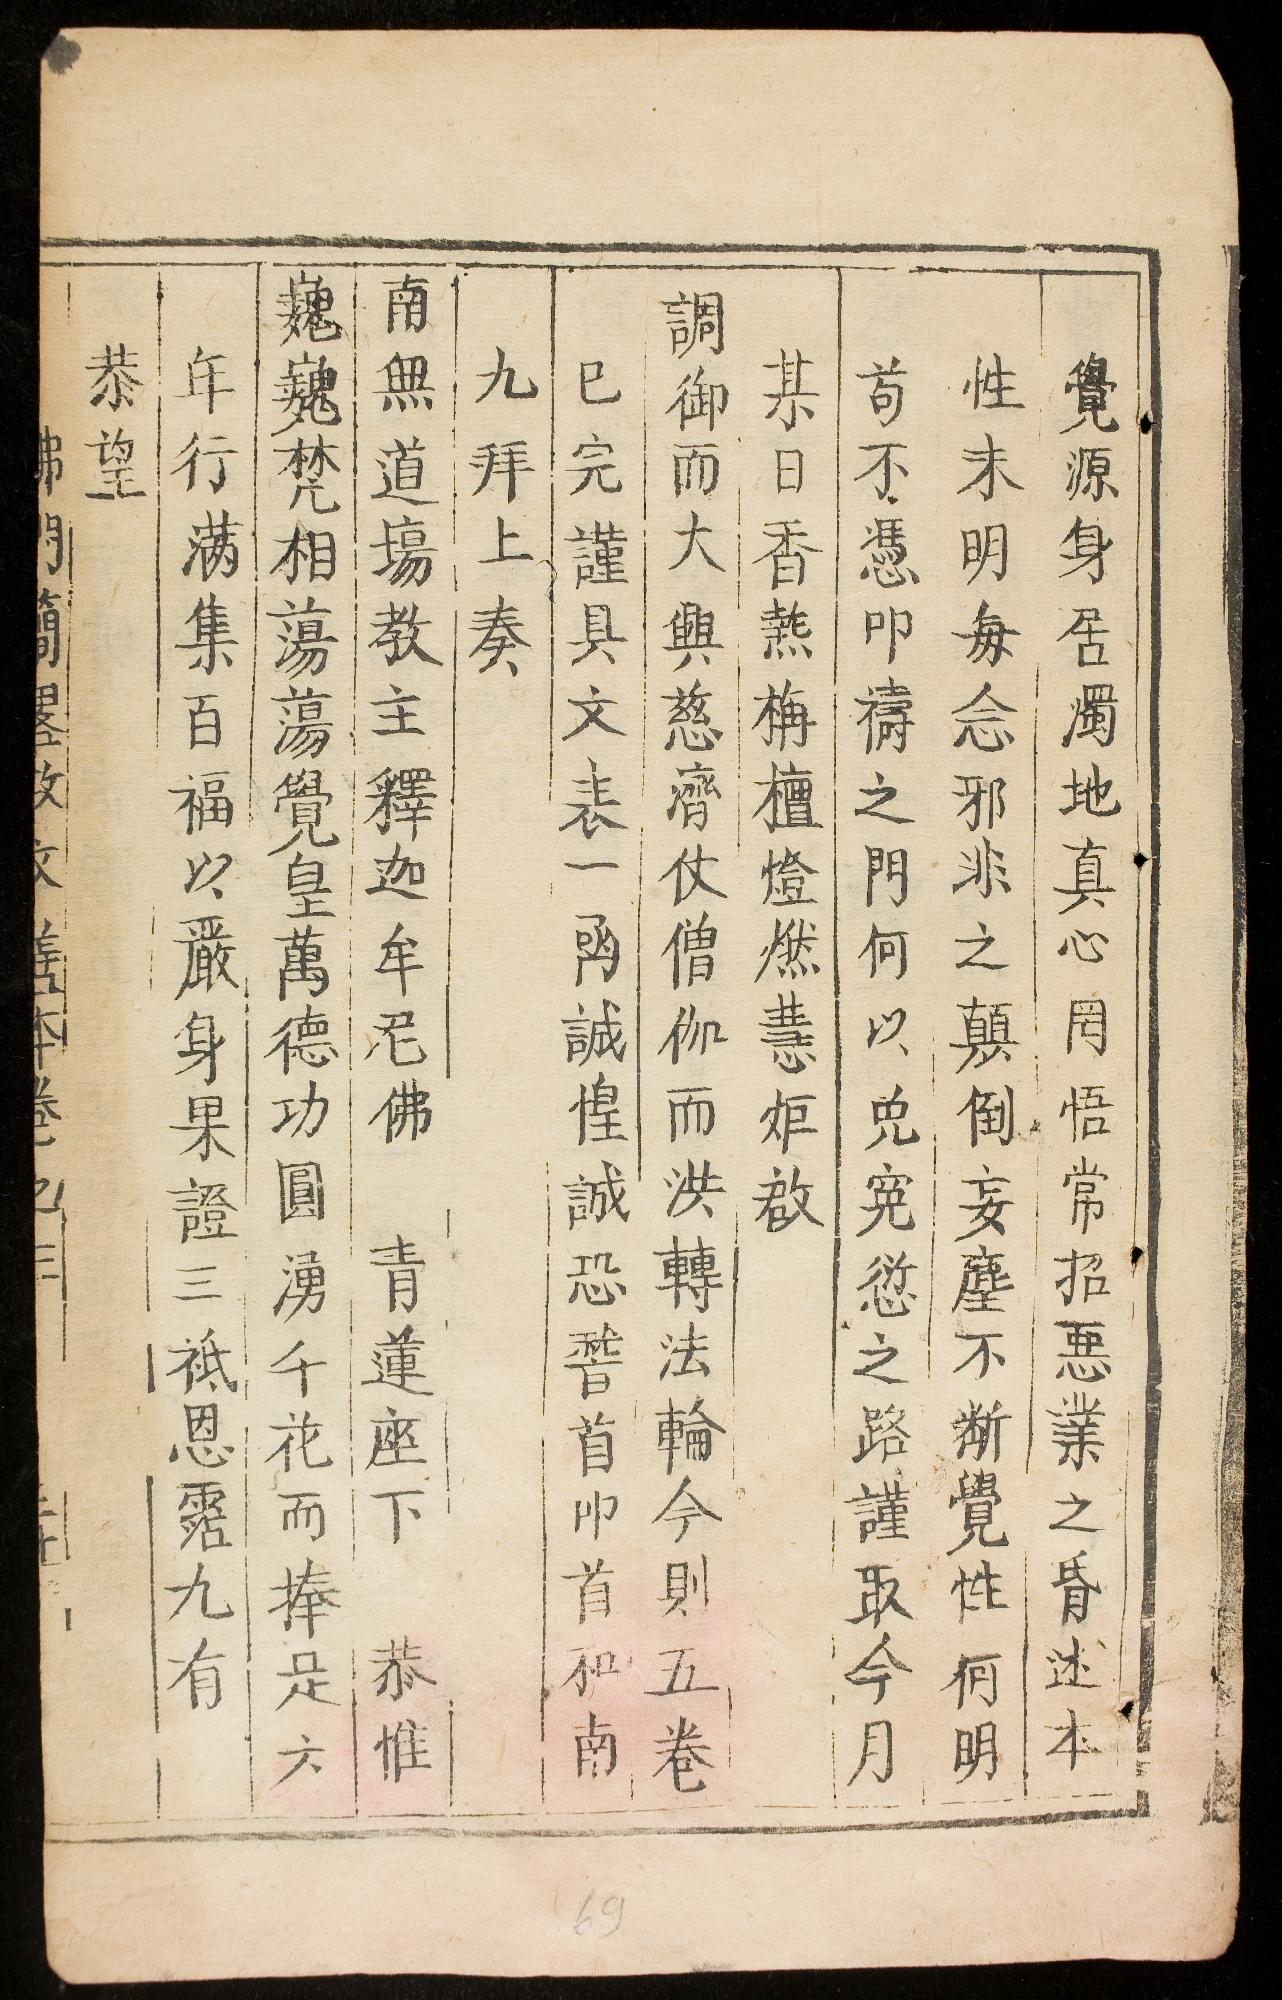 覺源身居濁地真心罔悟常招惡業之昏迷本
性未明每念邪非之顛倒妄塵不斷覺性何明
苟不憑叩禱之門何以免寃愆之路謹取今月
某日香爇栴檀燈燃慧炬啟
調御而大興慈濟仗僧伽而洪轉法輪今則五卷
已完謹具文表一函誠惶誠恐稽首叩首和南
九拜上奏
南無道場教主釋迦牟尼佛 青蓮座下 恭惟
巍巍梵相蕩蕩覺皇萬德功圓湧千花而捧足六
年行滿集百福以嚴身果證三祇恩霑九有
恭望
佛門簡畧教文善本卷之三
69